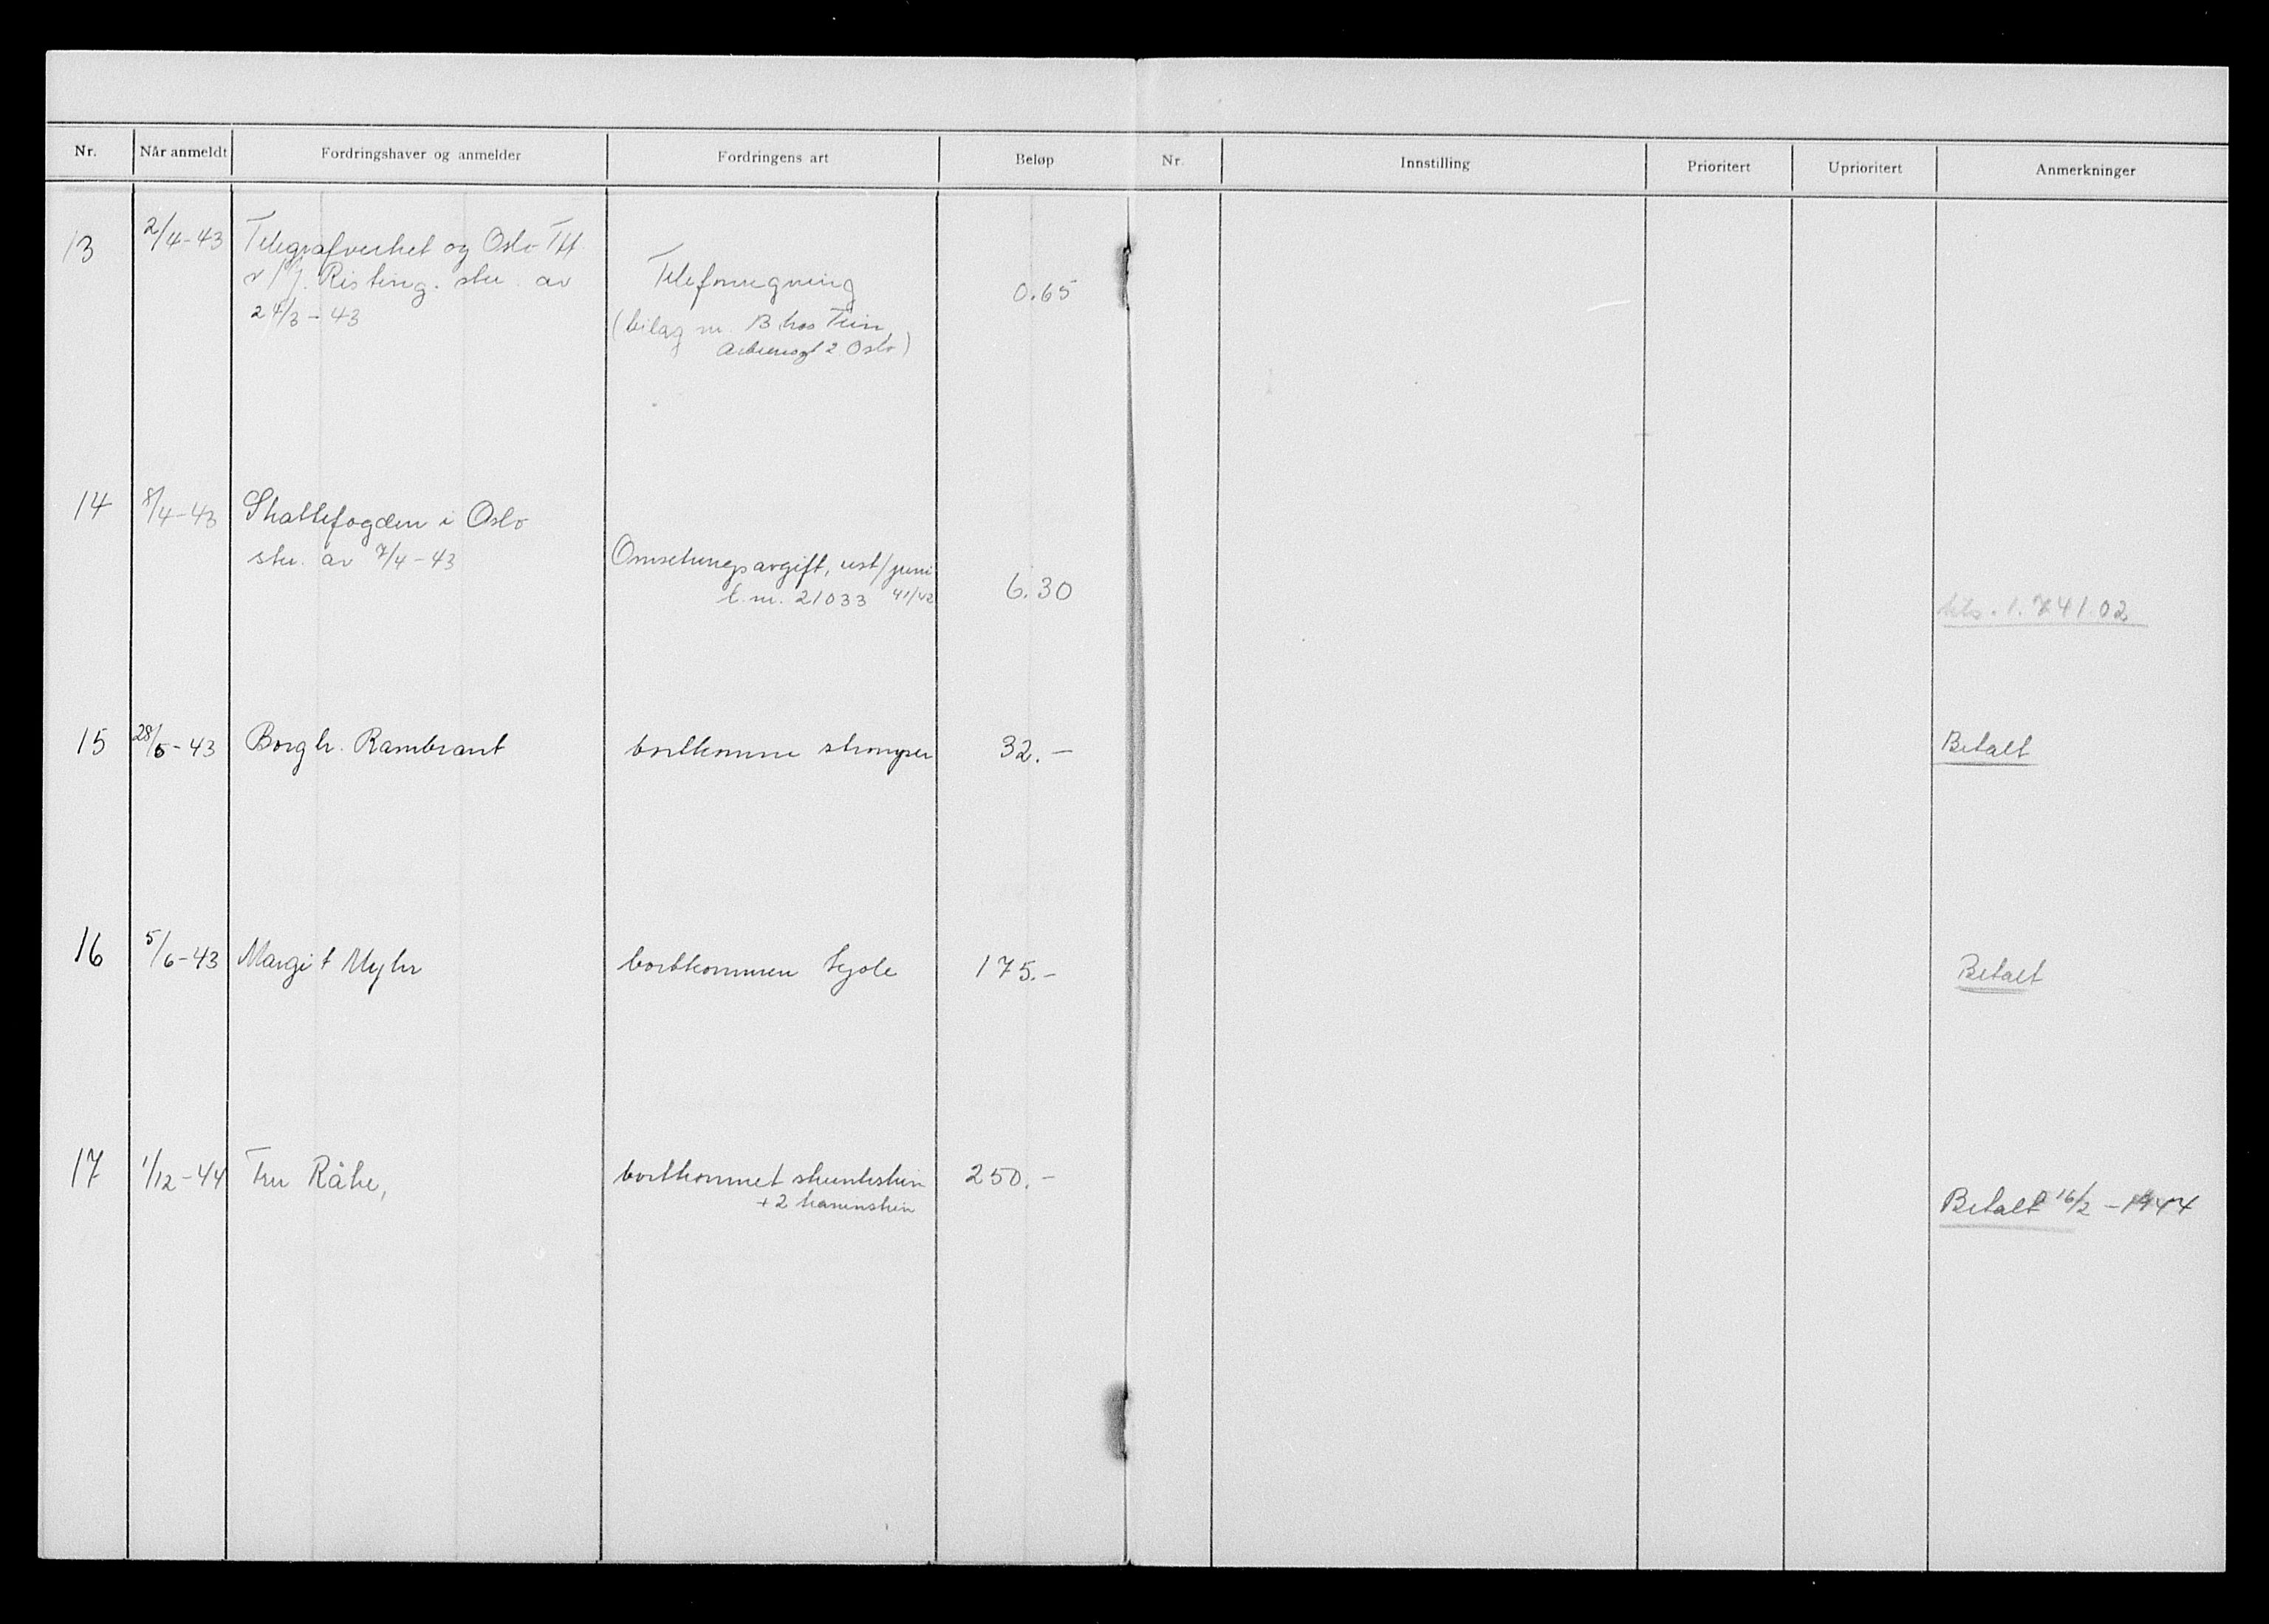 Nr. Når anmeldt Fordringshaver og anmelder Fordringens art Beløp Nr. Innstilling Prioritert Uprioritert Anmerkninger
13 2/4-43 Telegrafverket og Oslo Tlf.
v/ J. Risting. skr. av Telefonregning 0.65
24/3-43 (bilag nr. 13 hos
2 Oslo)
14 8/4-43 Skattefogden i Oslo
skr. av 7/4-43 Omsetningsavgift, rest/juni 6.30
l.nr. 21033 41/42 kto. 1.741.02
15 28/5-43 Borgh. Rambrant bortkomne strømper 32.- Betalt
16 5/6-43 Margit Myhr bortkommen kjole 175.- Betalt
17 1/12-44 Fru Råke, bortkommet skunkskin 250.-
+ 2 kaninskin Betalt 16/2-1944